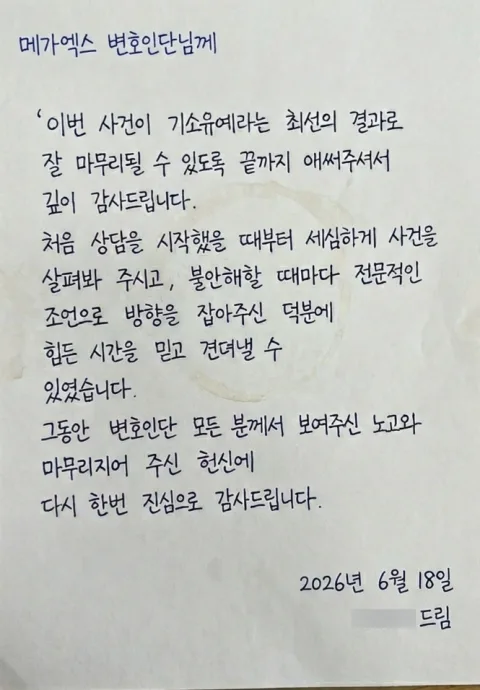 메가엑스 변호인단님께
‘이번 사건이 기소유예라는 최선의 결과로
잘 마무리될 수 있도록 끝까지 애써주셔서
깊이 감사드립니다.
처음 상담을 시작했을 때부터 세심하게 사건을
살펴봐 주시고, 불안해할 때마다 전문적인
조언으로 방향을 잡아주신 덕분에
힘든 시간을 믿고 견뎌낼 수
있었습니다.
그동안 변호인단 모든 분께서 보여주신 노고와
마무리지어 주신 헌신에
다시 한번 진심으로 감사드립니다.
2026년 6월 18일
드림